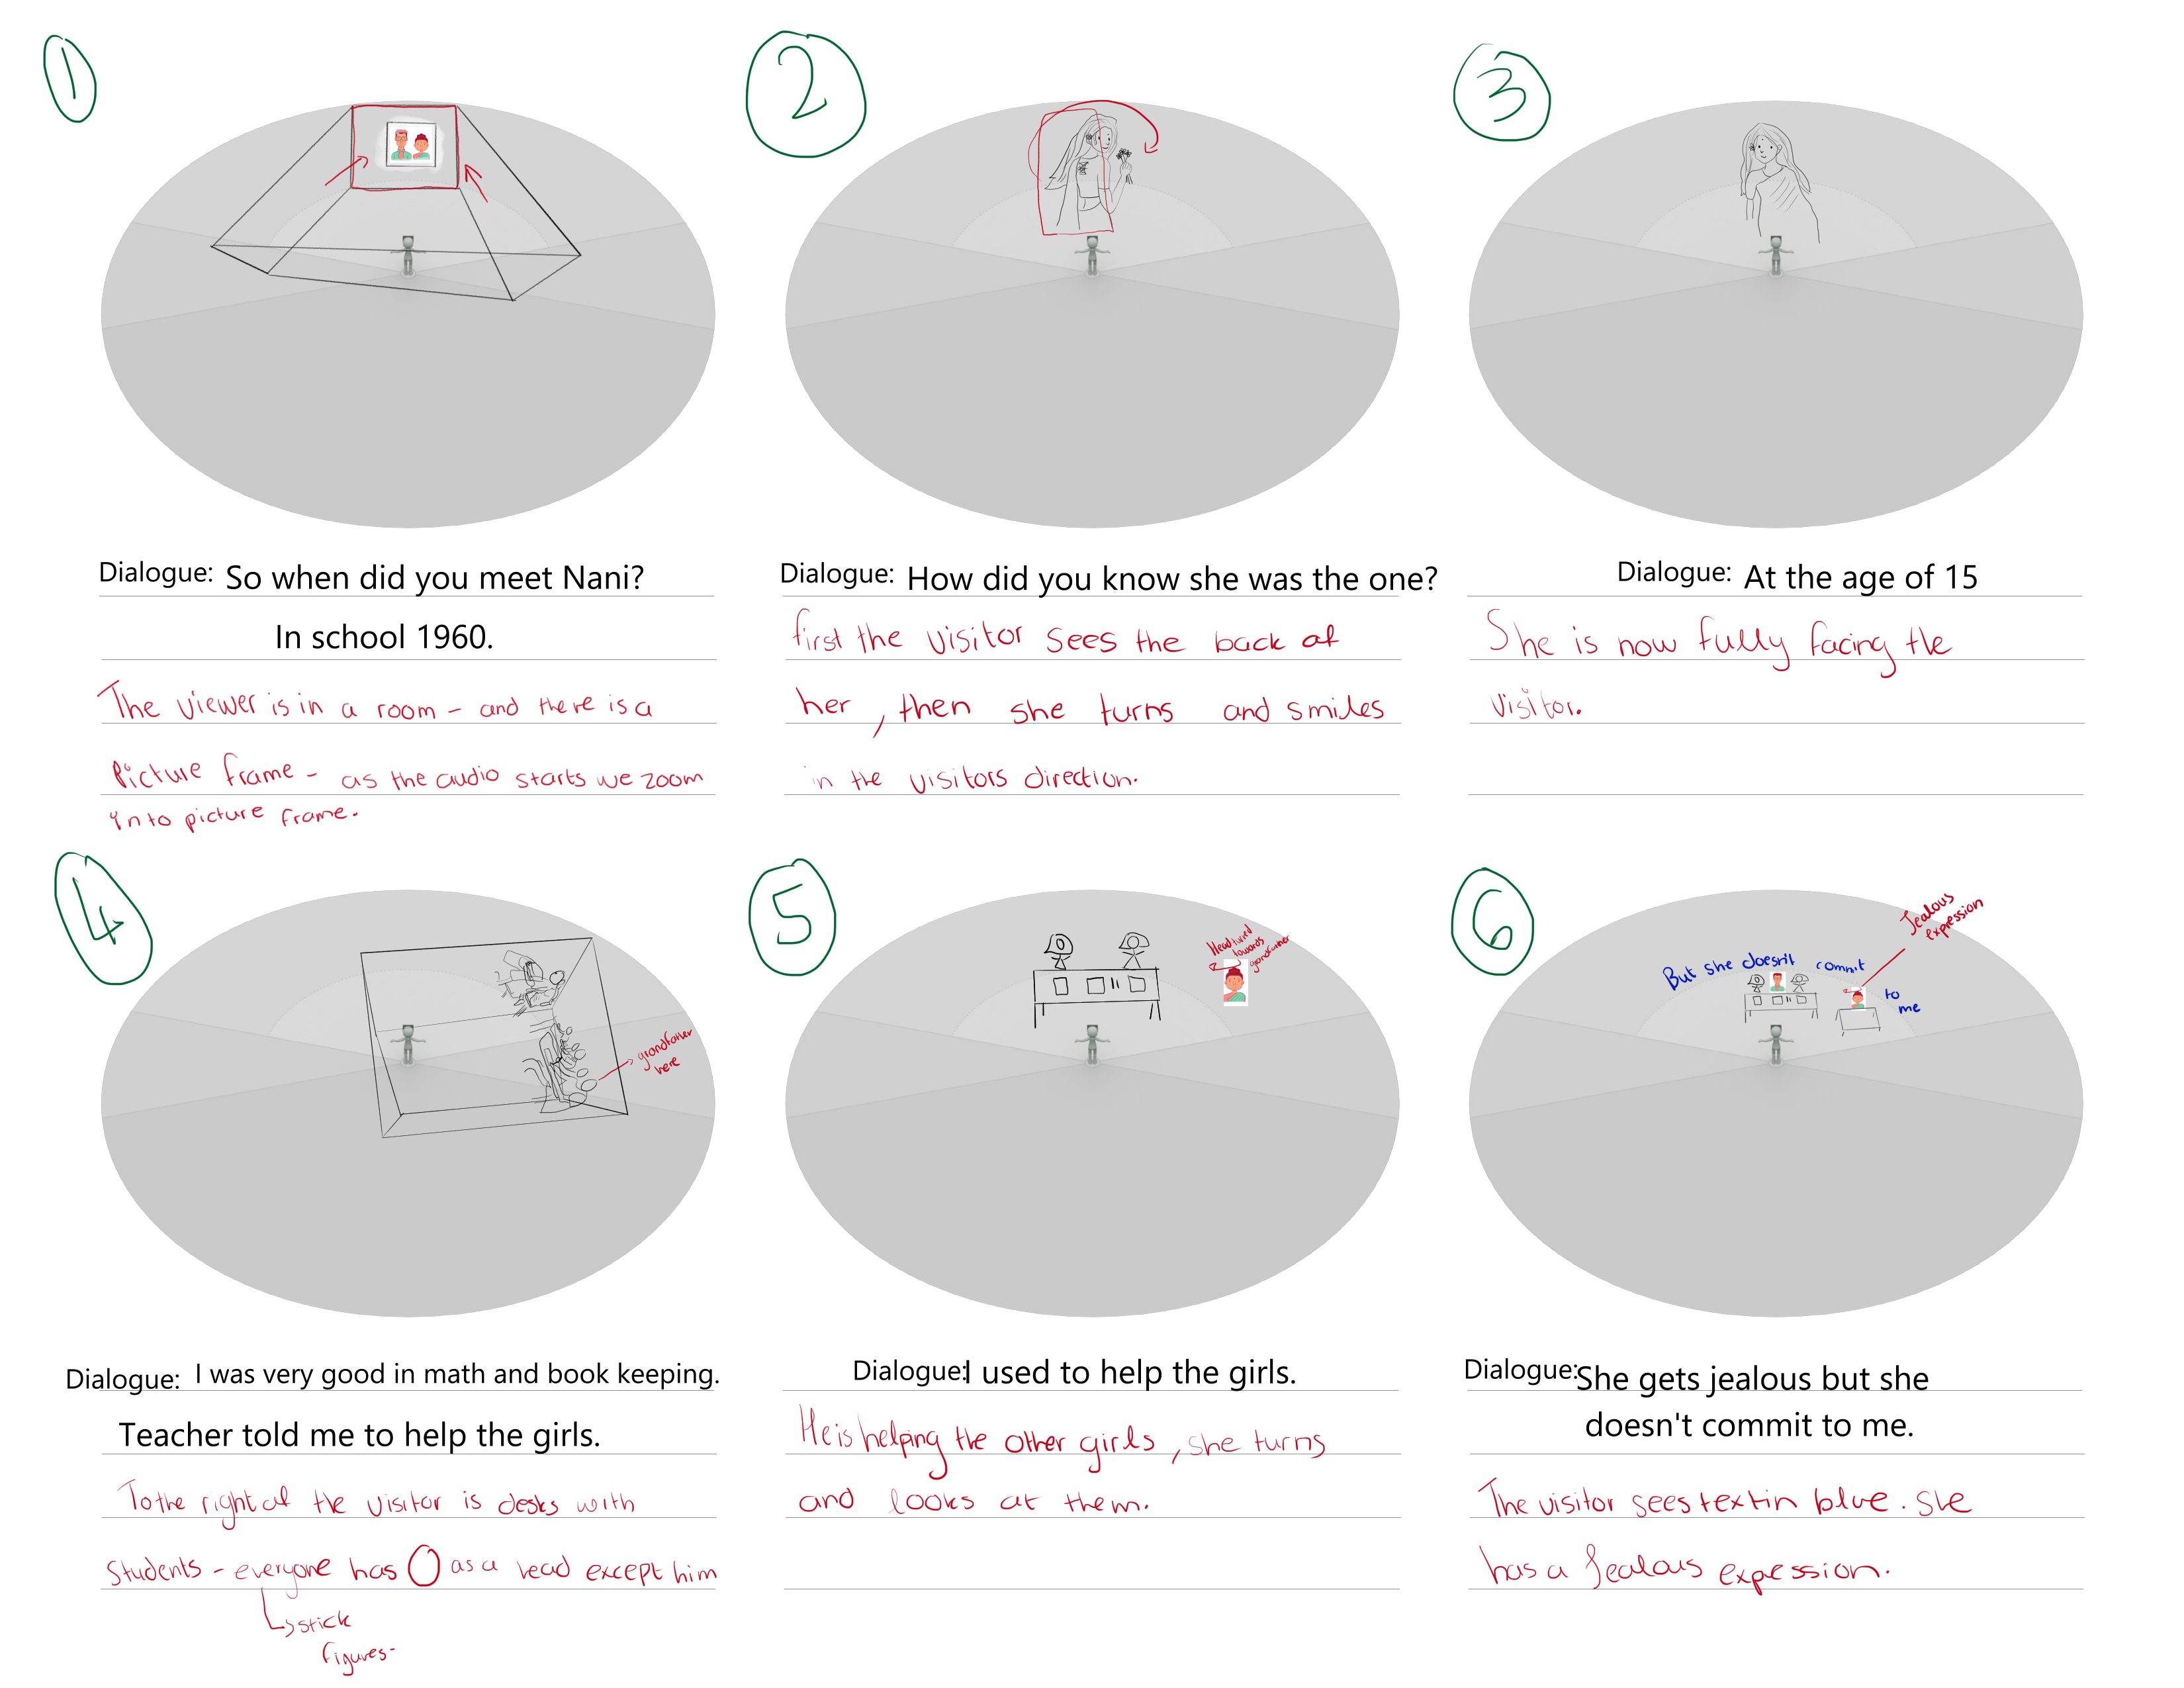 1
Dialogue: So when did you meet Nani?
In school 1960.
The viewer is in a room - and there is a
picture frame - as the audio starts we zoom
into picture frame.
2
Dialogue: How did you know she was the one?
first the visitor sees the back of
her, then she turns and smiles
in the visitors direction.
3
Dialogue: At the age of 15
She is now fully facing the
visitor.
4
grandfather
here
Dialogue: I was very good in math and book keeping.
Teacher told me to help the girls.
To the right of the visitor is desks with
students - everyone has O as a head except him
↳ stick
figures-
5
Head turned
towards
grandfather
Dialogue: I used to help the girls.
He is helping the other girls, she turns
and looks at them.
6
Jealous
expression
But she doesn't commit
to
me
Dialogue: She gets jealous but she
doesn't commit to me.
The visitor sees text in blue. She
has a Jealous expession.